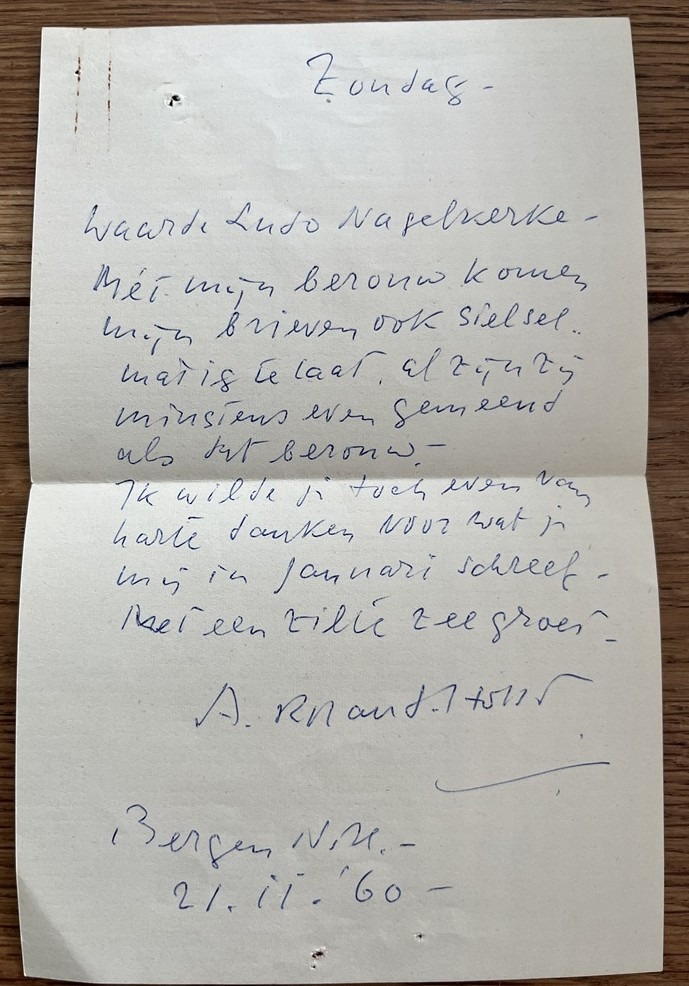 Zondag -
Waarde Ludo Nagelkerke -
Met mijn berouw komen
mijn brieven ook stelsel-
matig te laat, al zijn zij
minstens even gemeend
als dat berouw. -
Ik wilde je toch even van
harte danken voor wat je
mij in Januari schreef -
Met een zilte zeegroet -
A. Roland Holst
Bergen N.H. -
21. II. '60 -